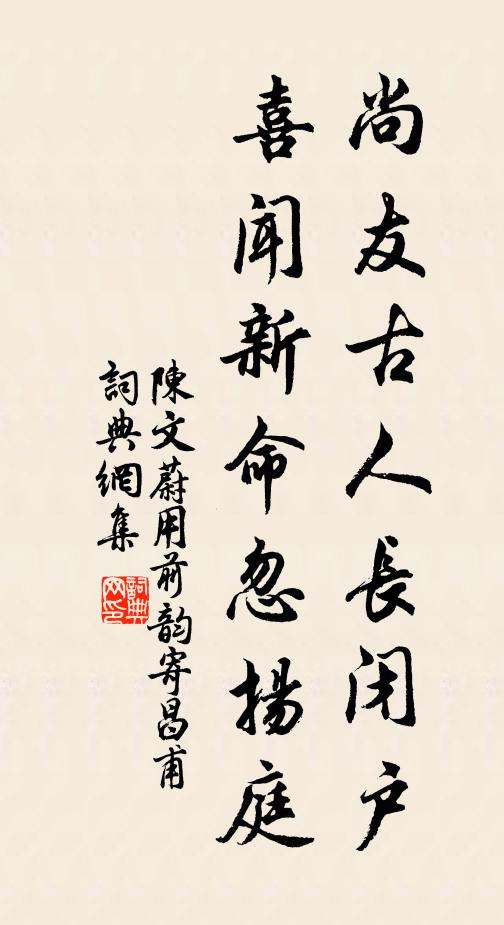 尚友古人長闭户
喜闻新命忽揚庭
陳文蔚用前韵寄昌甫
詞典網集
詞典网印